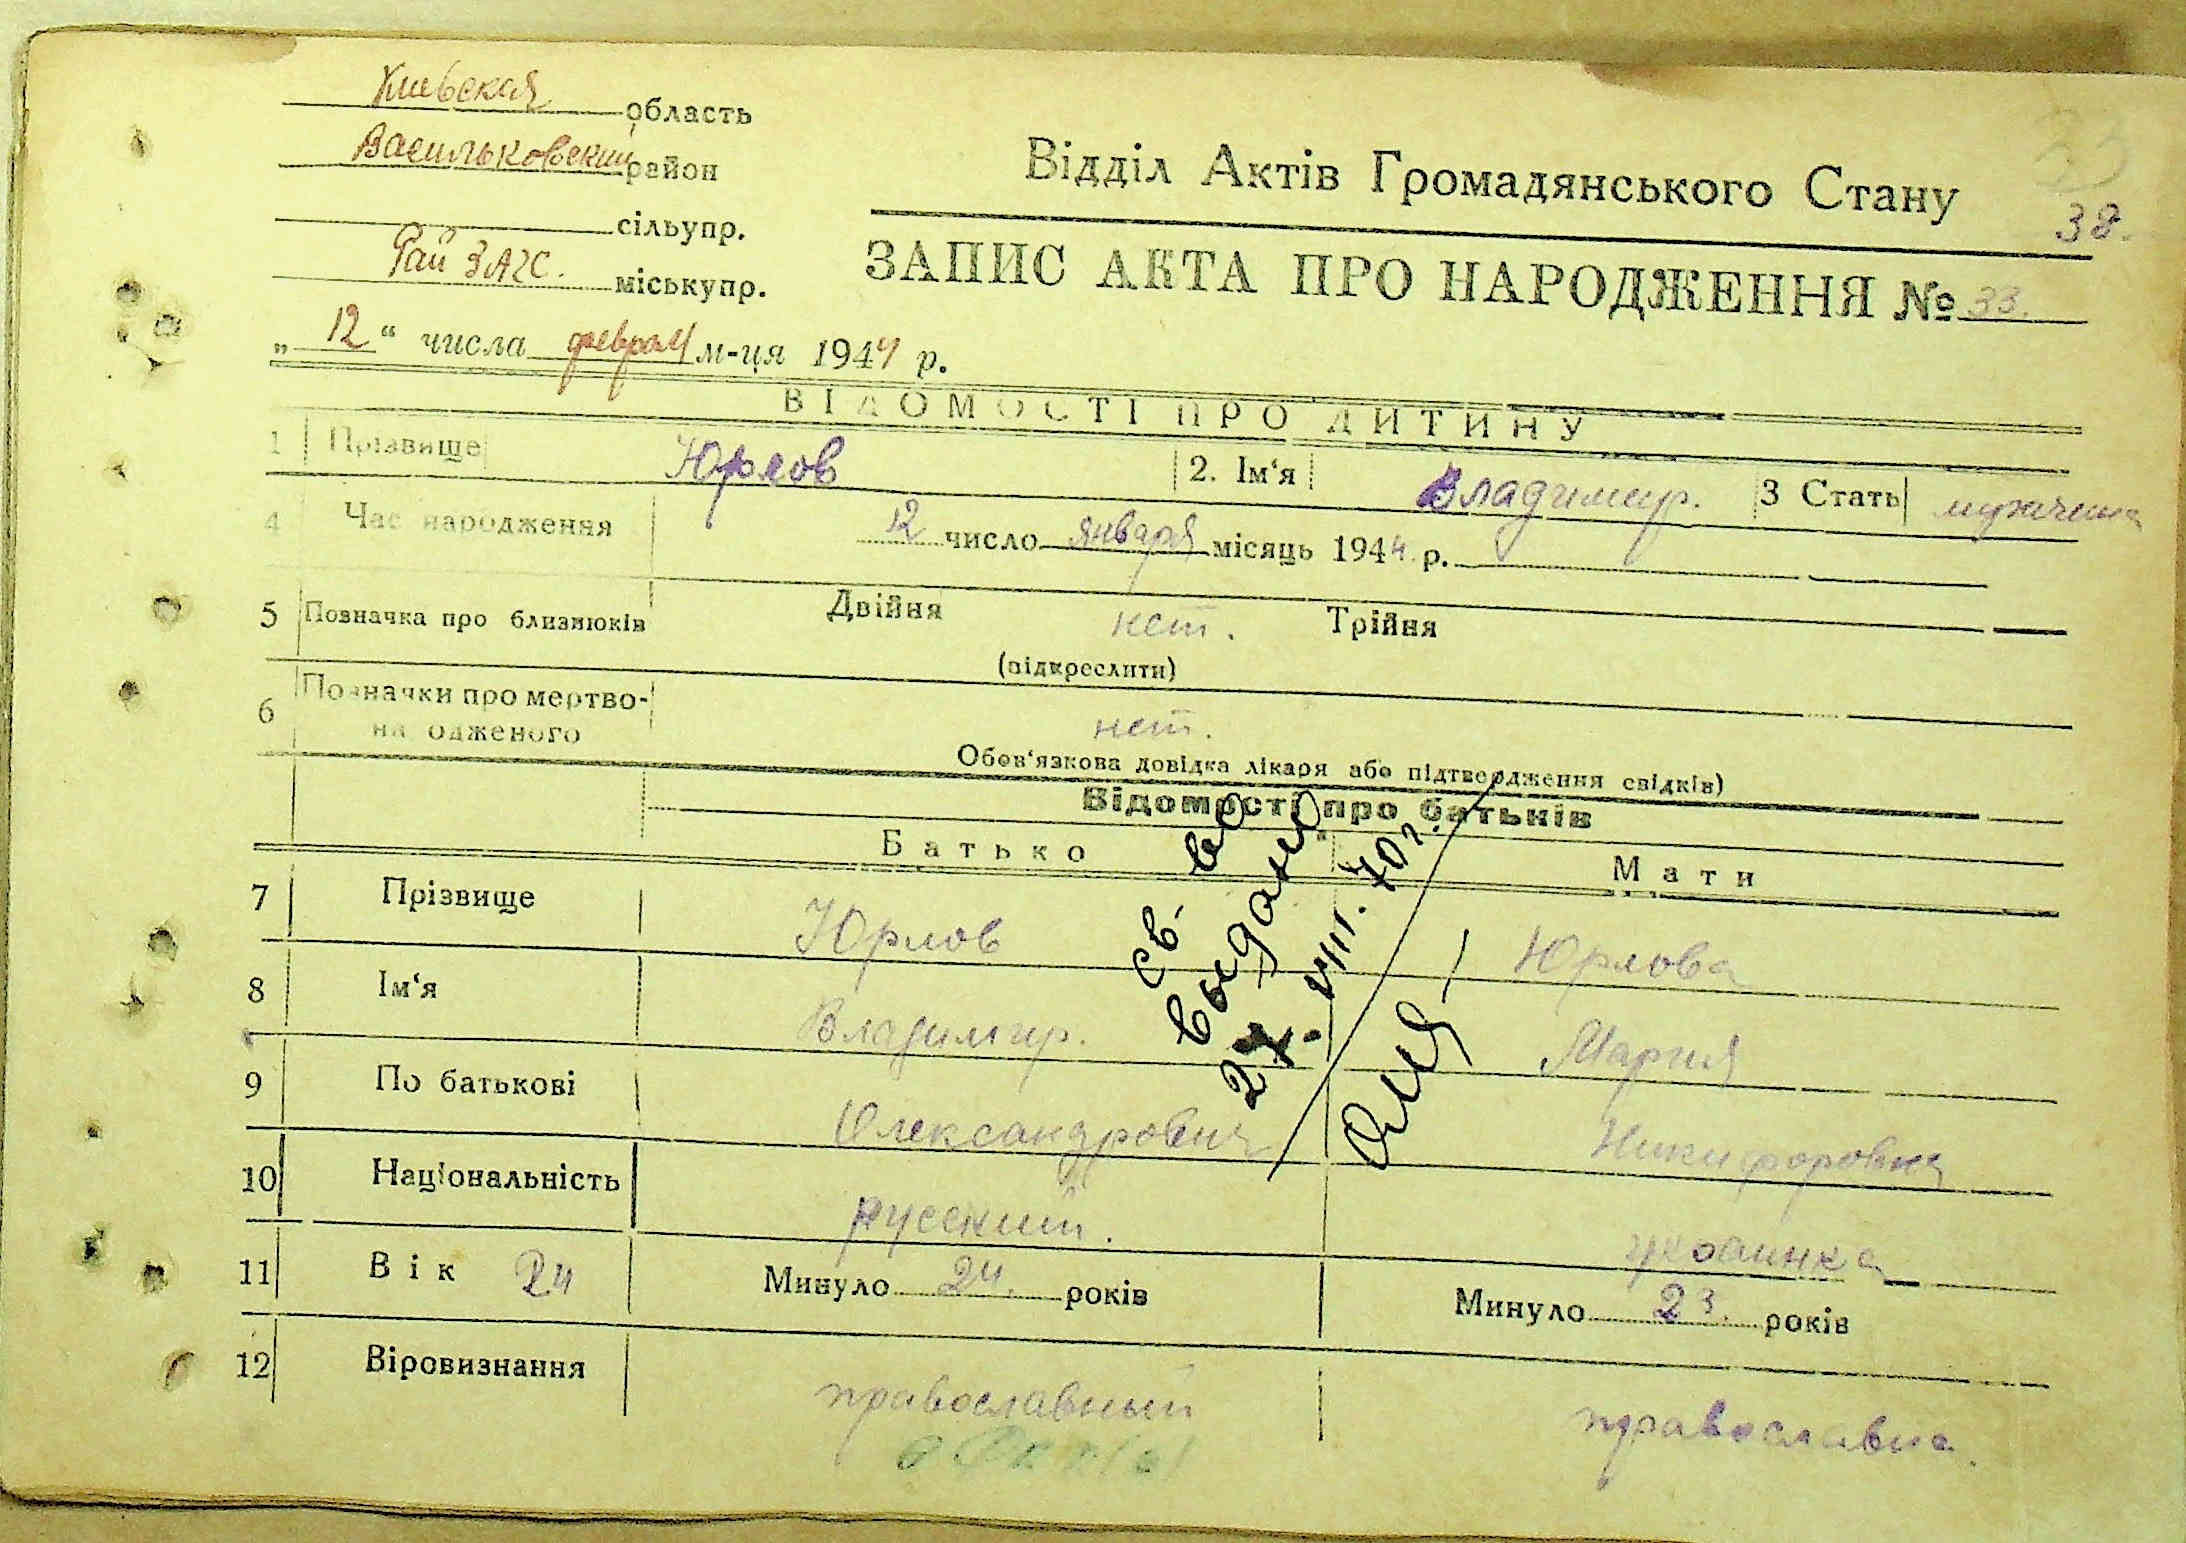 Киевская область
Васильковский район
сільупр.
Рай ЗАГС. міськупр.
„ 12 “ числа феврал м-ця 1944 р.
Відділ Актів Громадянського Стану
38.
ЗАПИС АКТА ПРО НАРОДЖЕННЯ № 33.
ВІДОМОСТІ ПРО ДИТИНУ
1 Прізвище Юрлов 2. Ім‘я Владимир. 3 Стать
4 Час народження 12 число января місяць 1944. р.
5 Позначка про близнюків Двійня нет. Трійня
(підкреслити)
6 Позначки про мертво-
народженого нет.
Обов‘язкова довідка лікаря або підтвердження свідків)
Відомості про батьків
Батько Мати
7 Прізвище Юрлов Юрлова
8 Ім‘я Владимир. Мария
9 По батькові Олександрович Никифоровна
10 Національність русский. украинка
11 Вік 24 Минуло 24. років Минуло 23. років
12 Віровизнання православный православна
св-во
выдано
27. VIII. 70 г.